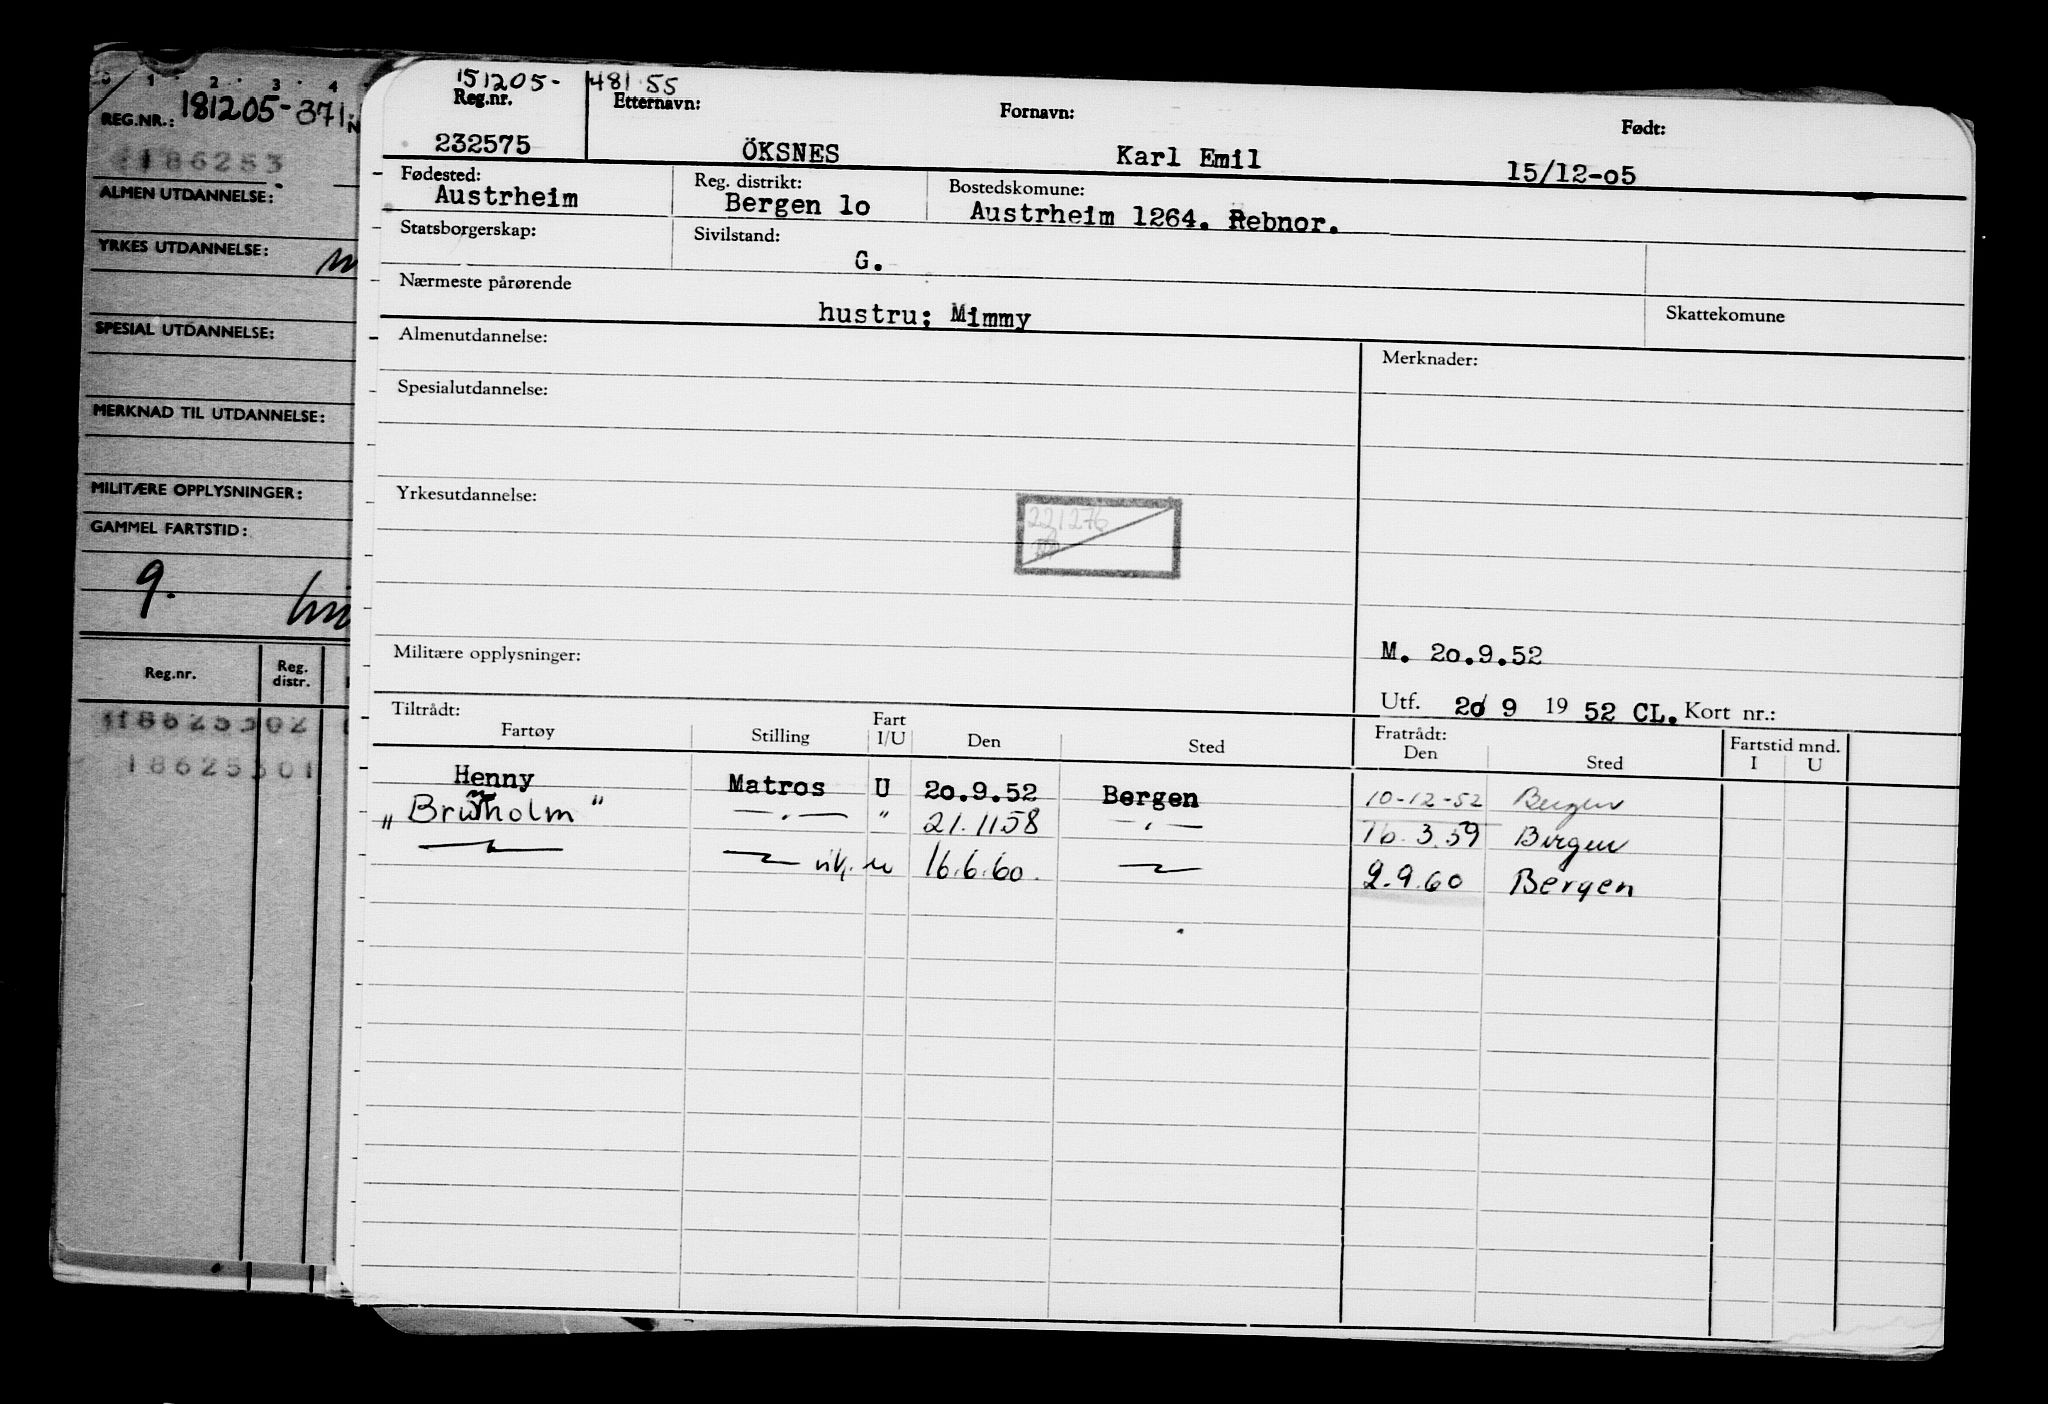 0 1 2 3 4
REG.NR.: 181205-371
186253
ALMEN UTDANNELSE:
YRKES UTDANNELSE:
SPESIAL UTDANNELSE:
MERKNAD TIL UTDANNELSE:
MILITÆRE OPPLYSNINGER:
GAMMEL FARTSTID:
9.
Reg.nr. Reg. distr.
18625302
18625301
151205- 481 55
Reg.nr. Etternavn: Fornavn: Født:
232575 ÖKSNES Karl Emil 15/12-05
Fødested: Reg. distrikt: Bostedskomune:
Austrheim Bergen lo Austrheim 1264. Rebnor.
Statsborgerskap: Sivilstand:
G.
Nærmeste pårørende
hustru; Mimmy Skattekomune
Almenutdannelse: Merknader:
Spesialutdannelse:
Yrkesutdannelse:
221276
Militære opplysninger: M. 2o.9.52
Utf. 20 9 19 52 CL. Kort nr.:
Tiltrådt: Fart Fratrådt: Fartstid mnd.
Fartøy Stilling I/U Den Sted Den Sted I U
Henny Matros U 2o.9.52 Bergen 10-12-52 Bergen
"Brunholm" —.— " 21.1158 —.— 16.3.59 Bergen
16.6.60. 2.9.60 Bergen